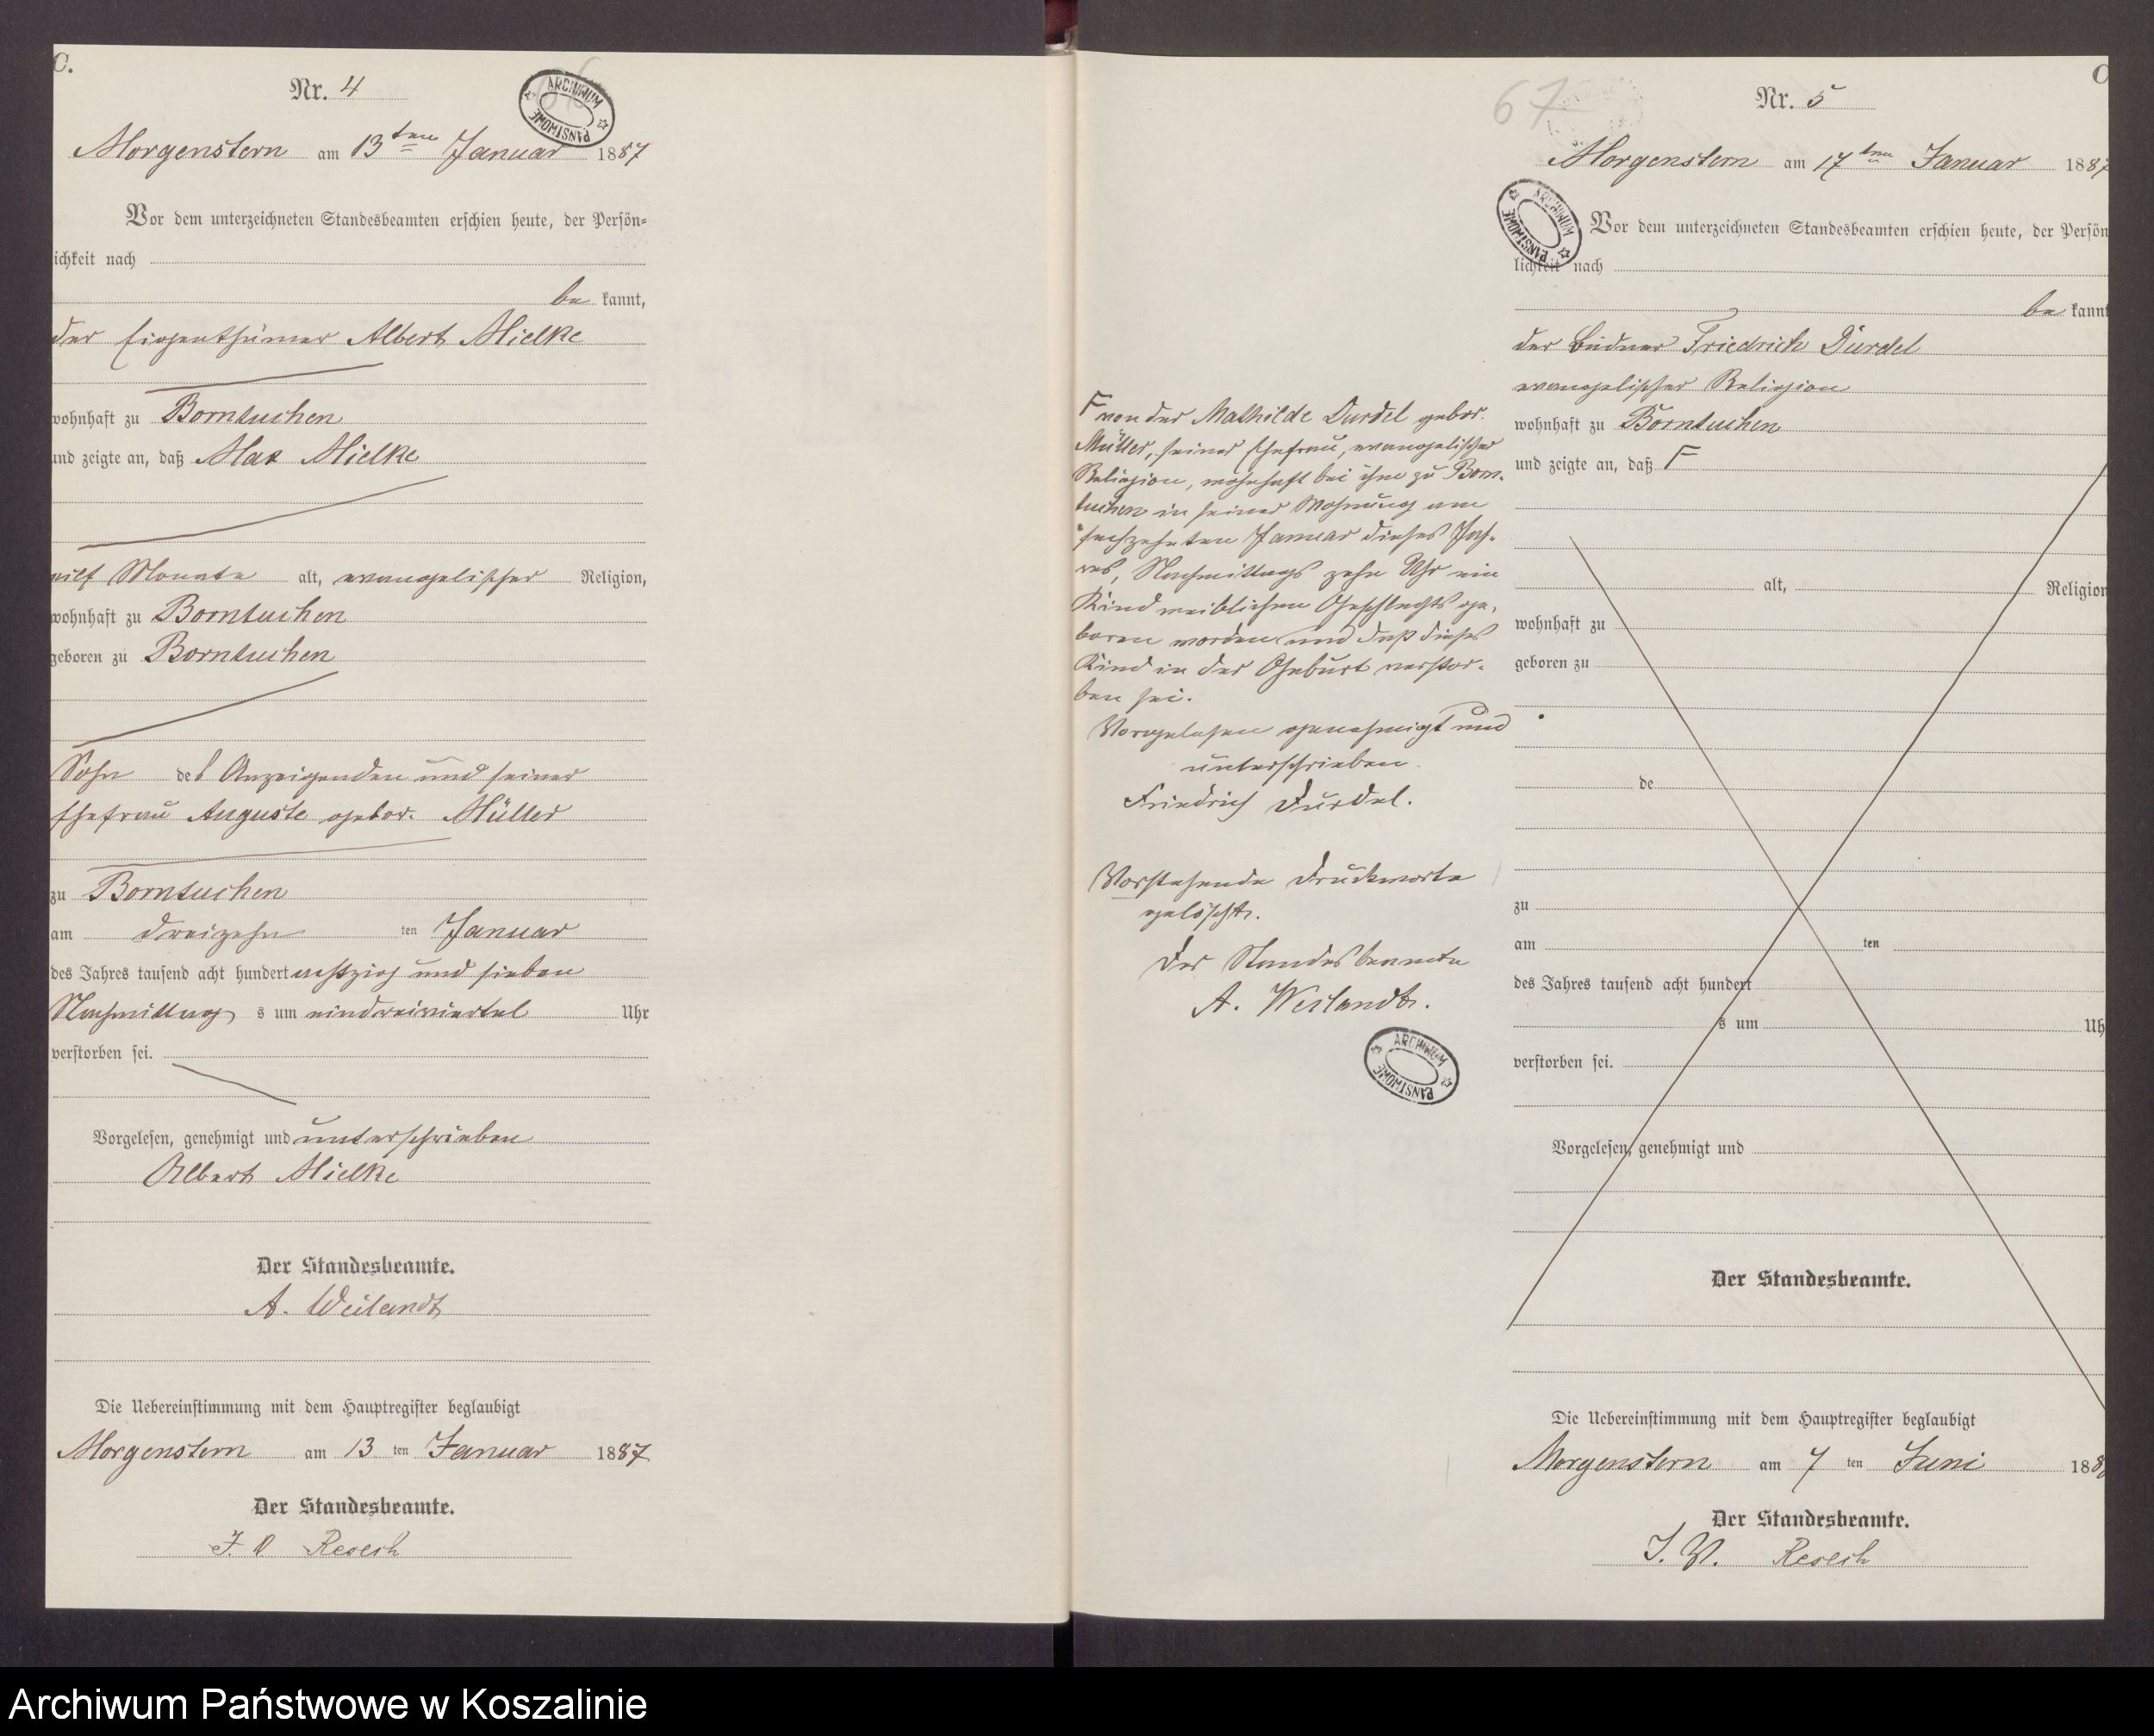 C.
Nr. 4
ARCHIWUM PAŃSTWOWE
Morgenstern am 13ten Januar 1887
Vor dem unterzeichneten Standesbeamten erschien heute, der Persön-
lichkeit nach
be kannt,
der Eigenthümer Albert Mielke
wohnhaft zu Borntuchen
und zeigte an, daß Max Mielke
eilf Monate alt, evangelischer Religion,
wohnhaft zu Borntuchen
geboren zu Borntuchen
Sohn des Anzeigenden und seiner
Ehefrau Auguste gebor. Müller
zu Borntuchen
am dreizehn ten Januar
des Jahres tausend acht hundert achtzig und sieben
Nachmittag s um eindreiviertel Uhr
verstorben sei.
Vorgelesen, genehmigt und unterschrieben
Albert Mielke
Der Standesbeamte.
A. Weilandt
Die Uebereinstimmung mit dem Hauptregister beglaubigt
Morgenstern am 13 ten Januar 1887
Der Standesbeamte.
J. V. Resech
C
67
Nr. 5
Morgenstern am 17ten Januar 1887
ARCHIWUM PAŃSTWOWE
Vor dem unterzeichneten Standesbeamten erschien heute, der Persön
lichkeit nach
be kannt
der Büdner Friedrich Durdel
evangelischer Religion
wohnhaft zu Borntuchen
und zeigte an, daß F
alt, Religion
wohnhaft zu
geboren zu
de
zu
am ten
des Jahres tausend acht hundert
s um Uh
verstorben sei.
Vorgelesen, genehmigt und
Der Standesbeamte.
F von der Mathilde Durdel gebor.
Müller, seiner Ehefrau, evangelischer
Religion, wohnhaft bei ihm zu Born-
tuchen in seiner Wohnung am
sechzehnten Januar dieses Jah-
res, Nachmittags zehn Uhr ein
Kind weiblichen Geschlechts ge-
boren worden und daß dieses
Kind in der Geburt verstor-
ben sei.
Vorgelesen genehmigt und
unterschrieben.
Friedrich Durdel.
Vorstehende Druckworte
gelöscht.
Der Standesbeamte
A. Weilandt.
ARCHIWUM PAŃSTWOWE
Die Uebereinstimmung mit dem Hauptregister beglaubigt
Morgenstern am 7 ten Juni 188
Der Standesbeamte.
J. V. Resech
Archiwum Państwowe w Koszalinie